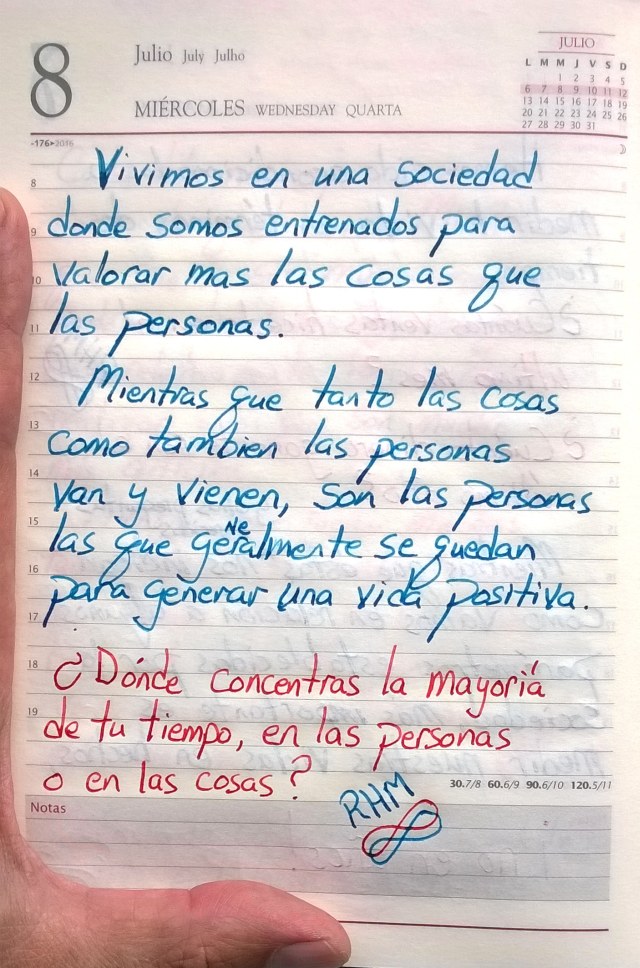 8
Julio July Julho
MIÉRCOLES WEDNESDAY QUARTA
JULIO
L M M J V S D
1 2 3 4 5
6 7 8 9 10 11 12
13 14 15 16 17 18 19
20 21 22 23 24 25 26
27 28 29 30 31
-176▸2016
8 Vivimos en una sociedad
9 donde somos entrenados para
10 valorar mas las cosas que
11 las personas.
12 Mientras que tanto las cosas
13 como tambien las personas
14 van y vienen, son las personas
15 las que geNeralmente se quedan
16 para generar una vida positiva.
17
18 ¿Dónde concentras la mayoría
19 de tu tiempo, en las personas
o en las cosas?
30.7/8 60.6/9 90.6/10 120.5/11
Notas
RHM